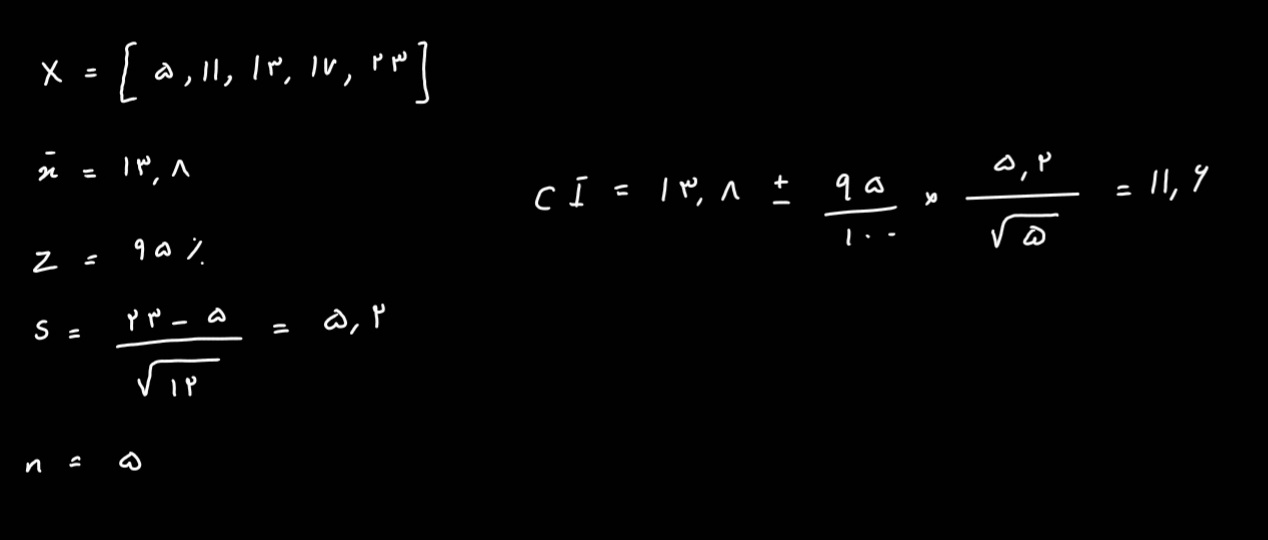 X = [ ۵, ۱۱, ۱۳, ۱۷, ۲۳ ]
x̄ = ۱۳,۸
Z = ۹۵٪
S = (۲۳ - ۵) / √۱۲ = ۵,۲
n = ۵
CI = ۱۳,۸ ± ۹۵/۱۰۰ × ۵,۲/√۵ = ۱۱,۶